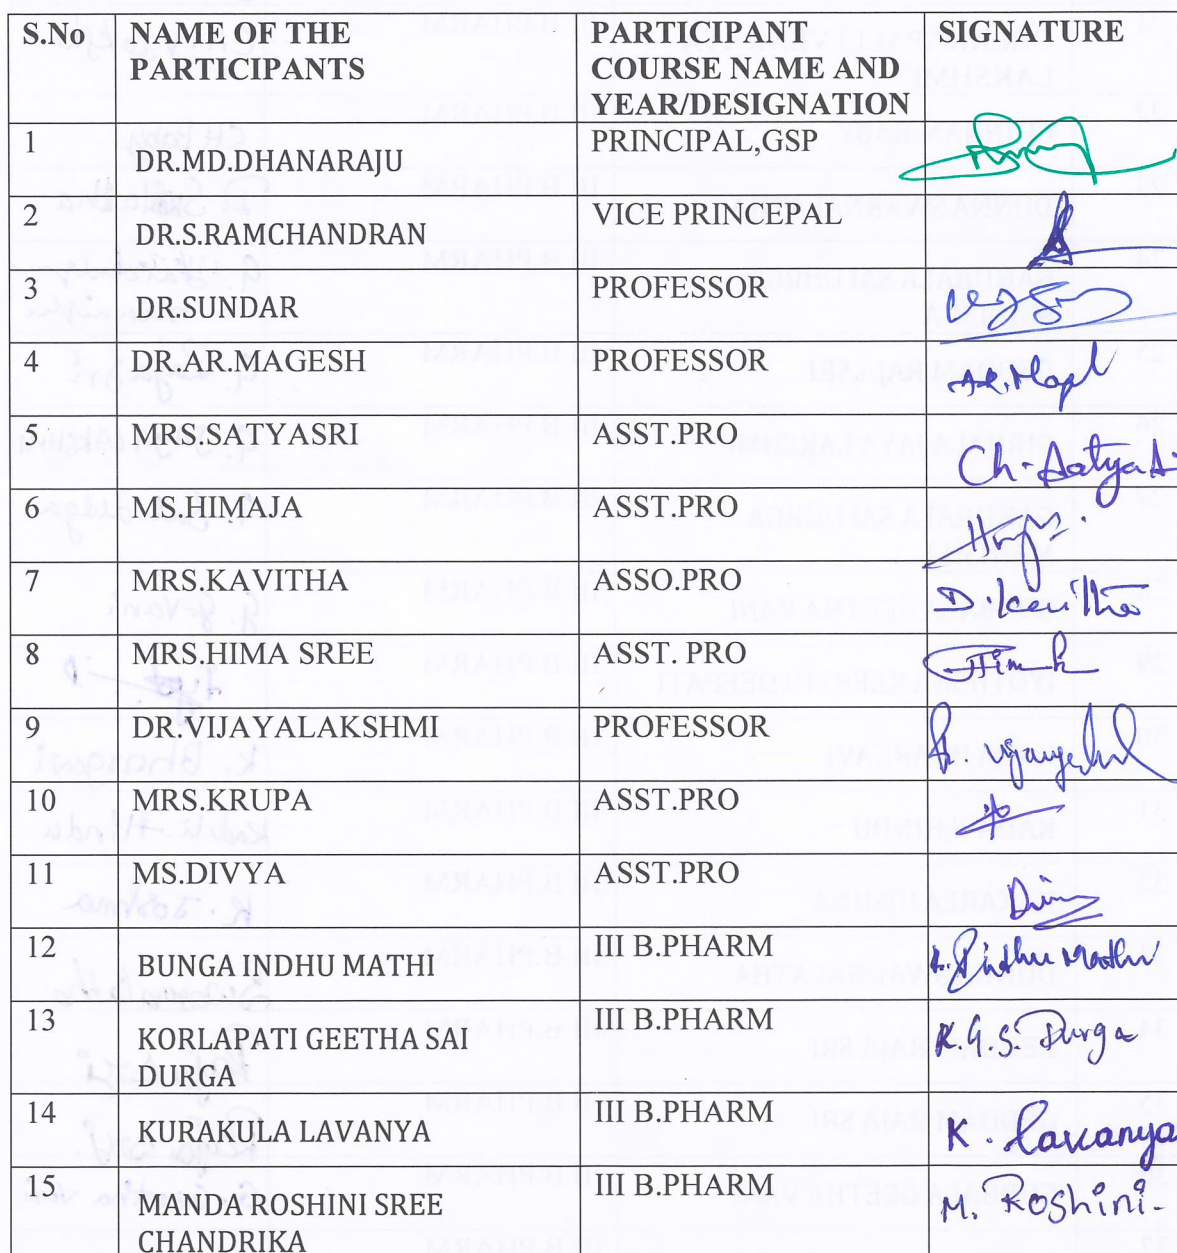 S.No NAME OF THE PARTICIPANTS PARTICIPANT COURSE NAME AND YEAR/DESIGNATION SIGNATURE
1 DR.MD.DHANARAJU PRINCIPAL,GSP
2 DR.S.RAMCHANDRAN VICE PRINCEPAL
3 DR.SUNDAR PROFESSOR
4 DR.AR.MAGESH PROFESSOR
5 MRS.SATYASRI ASST.PRO
6 MS.HIMAJA ASST.PRO
7 MRS.KAVITHA ASSO.PRO D.Kavitha
8 MRS.HIMA SREE ASST. PRO
9 DR.VIJAYALAKSHMI PROFESSOR
10 MRS.KRUPA ASST.PRO
11 MS.DIVYA ASST.PRO
12 BUNGA INDHU MATHI III B.PHARM
13 KORLAPATI GEETHA SAI DURGA III B.PHARM K.G.S. Durga
14 KURAKULA LAVANYA III B.PHARM K. Lavanya
15 MANDA ROSHINI SREE CHANDRIKA III B.PHARM M. Roshini.